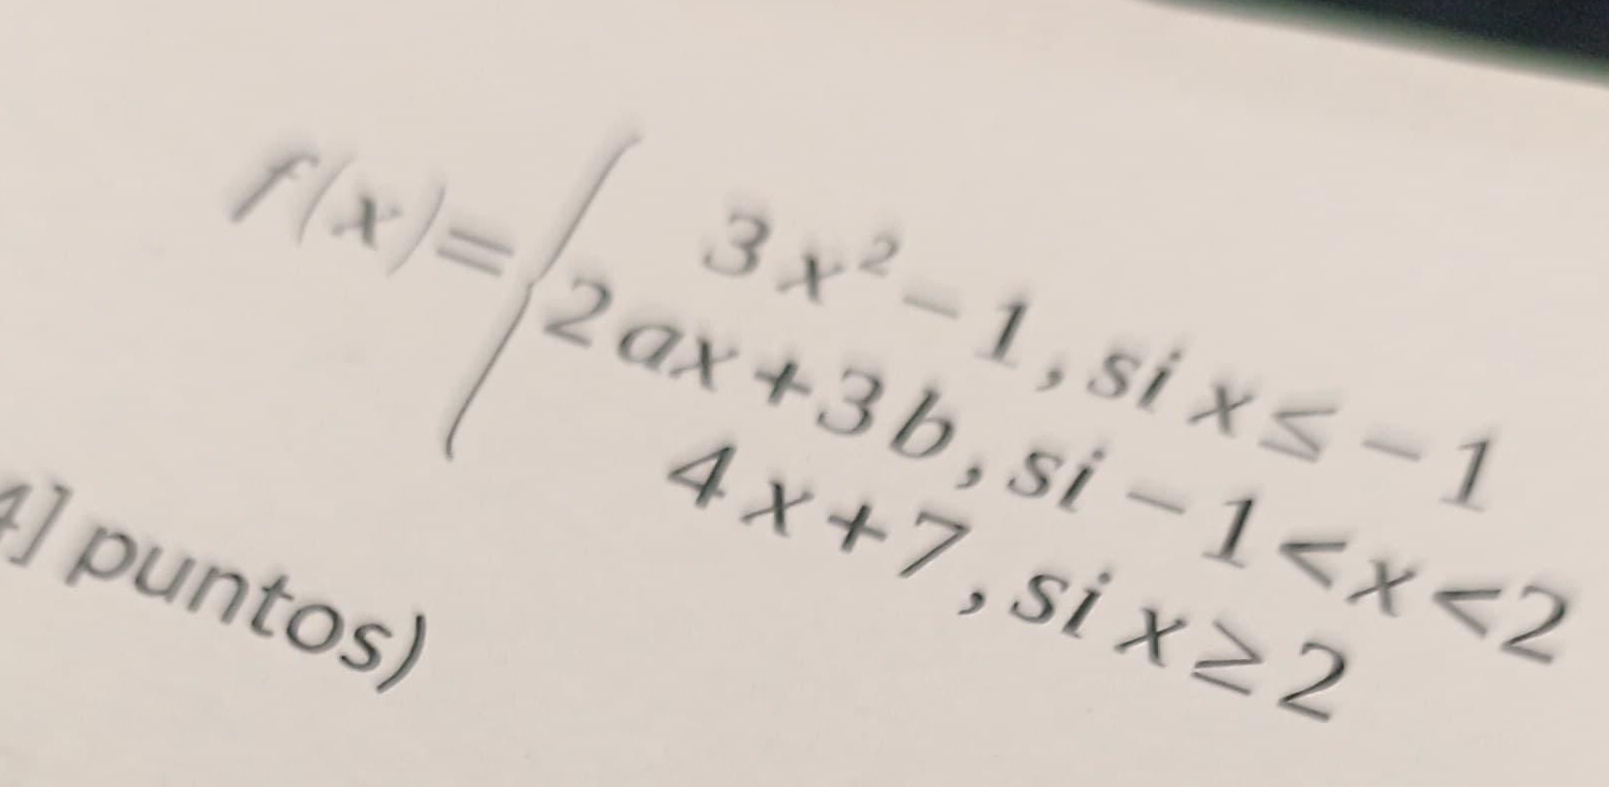 f(x)= { 3x² − 1, si x ≤ − 1
2ax + 3b, si − 1 < x < 2
4x + 7, si x ≥ 2
4] puntos)